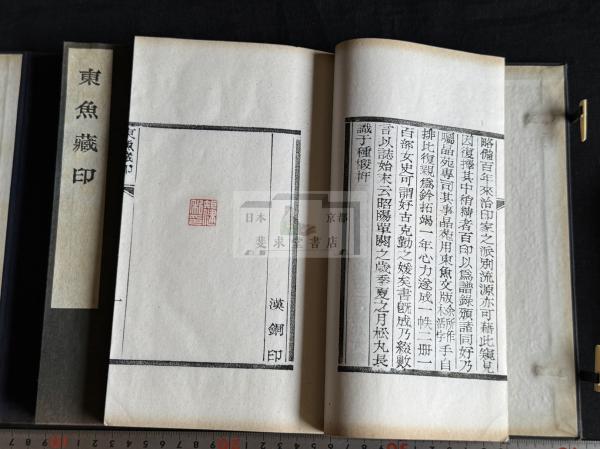 略備百年來治印家之派別流源亦可藉此窺見
因復擇其中精粹者百印以為譜錄頒諸同好乃
囑品苑專司其事品苑用東魚文版 手自
排比復親為鈐拓竭一年心力遂成一帙二冊一
百部女史可謂好古克勤之媛矣書既成乃綴數
言以誌始末云昭陽單閼之歲季夏之月松丸長
識于種瑕簃
漢銅印
東魚藏印
一
東魚藏印
日本 京都
斐求堂書店